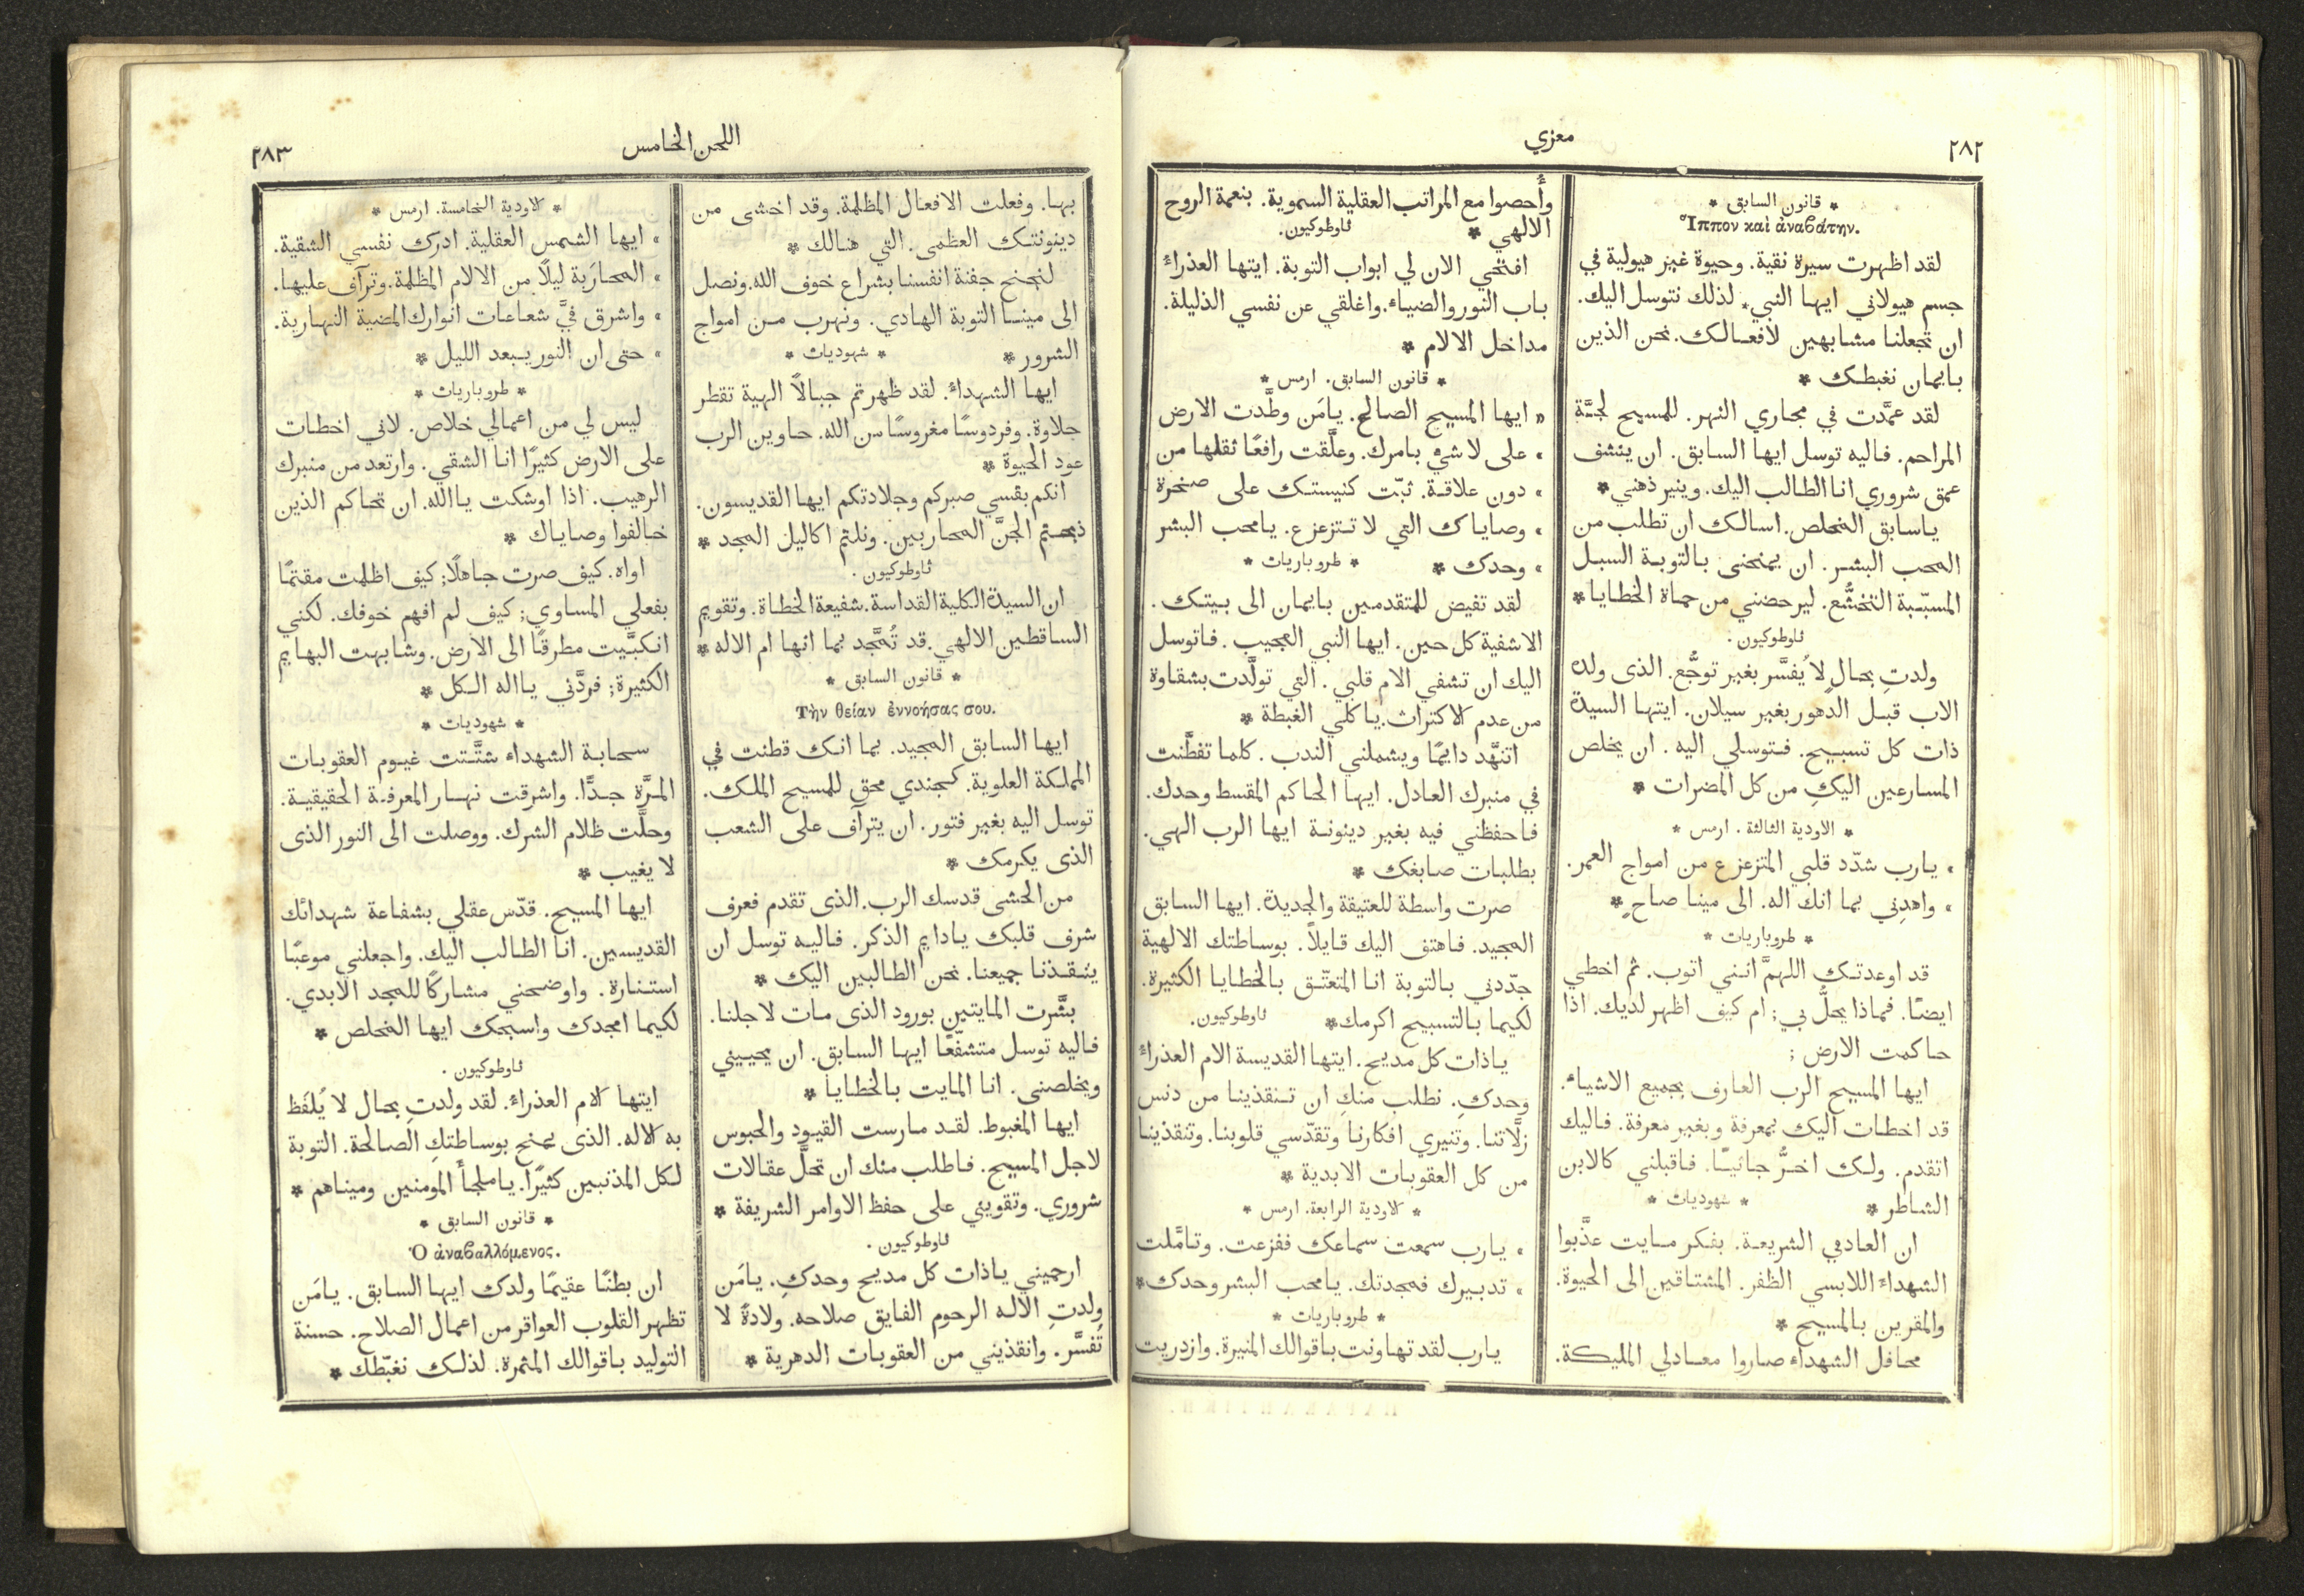 ٢٨٢
معزي
* قانون السابق *
Ἵππον καὶ ἀναβάτην.
لقد اظهرت سيرة نقية. وحيوة غير هيولية في
جسم هيولاني ايها النبي* لذلك نتوسل اليك.
ان تجعلنا مشابهين لافعالك. نحن الذين
بايمان نغبطك *
لقد عمَّدت في مجاري النهر. للمسيح لجَّة
المراحم. فاليه توسل ايها السابق. ان ينشف
عمق شروري انا الطالب اليك. وينير ذهني *
ياسابق المخلص. اسالك ان تطلب من
المحب البشر. ان يمنحني بالتوبة السبل
المسبّبة التخشُّع. ليرحضني من حماة الخطايا *
ثاوطوكيون.
ولدتِ بحالٍ لا يُفسَّر بغير توجُّع. الذى ولده
الاب قبل الدهور بغير سيلان. ايتها السيدة
ذات كل تسبيح. فتوسلي اليه. ان يخلص
المسارعين اليكِ من كل المضرات *
* الاودية الثالثة. ارمس *
» يارب شدّد قلبي المتزعزع من امواج العمر.
» واهدِني بما انك اله. الى مينا صاحٍ *
* طروباريات *
قد اوعدتك اللهمَّ انني اتوب. ثم اخطي
ايضًا. فماذا يحلُّ بي; ام كيف اظهر لديك. اذا
حاكمت الارض ;
ايها المسيح الرب العارف بجميع الاشياء.
قد اخطات اليك بمعرفة وبغير معرفة. فاليك
اتقدم. ولك اخرُّ جاثيًا. فاقبلني كالابن
الشاطر * * شهوديات *
ان العادمي الشريعة. بفكر مايت عذَّبوا
الشهداء اللابسي الظفر. المشتاقين الى الحيوة.
والمقرين بالمسيح *
محافل الشهداء صاروا معادلي المليكة.
وأُحصوا مع المراتب العقلية السموية. بنعمة الروح
الالهي * ثاوطوكيون.
افتحي الان لي ابواب التوبة. ايتها العذراءُ
باب النور والضياء. واغلقي عن نفسي الذليلة.
مداخل الالام *
* قانون السابق. ارمس *
» ايها المسيح الصالح. يامَن وطَّدت الارض
» على لاشيْ بامرك. وعلَّقت رافعًا ثقلها من
» دون علاقة. ثبّت كنيستك على صخرة
» وصاياك التي لا تتزعزع. يامحب البشر
» وحدك * * طروباريات *
لقد تفيض للمتقدمين بايمان الى بيتك.
الاشفية كل حين. ايها النبي العجيب. فاتوسل
اليك ان تشفي الام قلبي. التي تولَّدت بشقاوة
من عدم الاكتراث. ياكلي الغبطة *
اتنهَّد دايمًا ويشملني الندب. كلما تفطَّنت
في منبرك العادل. ايها الحاكم المقسط وحدك.
فاحفظني فيه بغير دينونة ايها الرب الهي.
بطلبات صابغك *
صرت واسطة للعتيقة والجديدة. ايها السابق
المجيد. فاهتف اليك قايلاً. بوساطتك الالهية
جدّدني بالتوبة انا المتعتّق بالخطايا الكثيرة.
لكيما بالتسبيح اكرمك * ثاوطوكيون.
ياذات كل مديح. ايتها القديسة الام العذراءُ
وحدكِ. نطلب منكِ ان تنقذينا من دنس
زلَّاتنا. وتنيري افكارنا وتقدّسي قلوبنا. وتنقذينا
من كل العقوبات الابدية *
* الاودية الرابعة. ارمس *
» يارب سمعت سماعك ففزعت. وتامَّلت
» تدبيرك فمجدتك. يامحب البشر وحدك *
* طروباريات *
يارب لقد تهاونت باقوالك المنيرة. وازدريت
اللحن الخامس
٢٨٣
بها. وفعلت الافعال المظلمة. وقد اخشى من
دينونتك العظمى. التي هنالك *
لنجنح جفنة انفسنا بشراع خوف الله. ونصل
الى مينا التوبة الهادي. ونهرب من امواج
الشرور * * شهوديات *
ايها الشهداءُ. لقد ظهرتم جبالاً الهية تقطر
حلاوة. وفردوسًا مغروسًا من الله. حاوين الرب
عود الحيوة *
انكم بقسي صبركم وجلادتكم ايها القديسون.
ذبحتم الجنَّ المحاربين. ونلتم اكاليل المجد *
ثاوطوكيون.
ان السيدة الكلية القداسة. شفيعة الخطاة. وتقويم
الساقطين الالهي. قد تُمجَّد بما انها ام الاله *
* قانون السابق *
Τὴν θείαν ἐννοήσας σου.
ايها السابق المجيد. بما انك قطنت في
المملكة العلوية. كجندي محق للمسيح الملك.
توسل اليه بغير فتور. ان يترآف على الشعب
الذى يكرمك *
من الحشى قدسك الرب. الذى تقدم فعرف
شرف قلبك يادايم الذكر. فاليه توسل ان
ينقذنا جميعنا. نحن الطالبين اليك *
بشَّرت المايتين بورود الذى مات لاجلنا.
فاليه توسل متشفّعًا ايها السابق. ان يحييني
ويخلصنى. انا المايت بالخطايا *
ايها المغبوط. لقد مارست القيود والحبوس
لاجل المسيح. فاطلب منك ان تحلَّ عقالات
شروري. وتقويني على حفظ الاوامر الشريفة *
ثاوطوكيون.
ارحميني ياذات كل مديح وحدكِ. يامَن
ولدتِ الاله الرحوم الفايق صلاحه. ولادةً لا
تُفسَّر. وانقذيني من العقوبات الدهرية *
* الاودية الخامسة. ارمس *
» ايها الشمس العقلية. ادرك نفسي الشقية.
» المحارَبة ليلاً من الالام المظلمة. وترآف عليها.
» واشرق فيَّ شعاعات انوارك المضية النهارية.
» حتى ان النور يبعد الليل *
* طروباريات *
ليس لي من اعمالي خلاص. لاني اخطات
على الارض كثيرًا انا الشقي. وارتعد من منبرك
الرهيب. اذا اوشكت ياالله. ان تحاكم الذين
خالفوا وصاياك *
اواه. كيف صرت جاهلًا; كيف اظلمت مقتمًا
بفعلي المساوي; كيف لم افهم خوفك. لكني
انكبَّيت مطرقًا الى الارض. وشابهت البهايم
الكثيرة; فردَّني يااله الكل *
* شهوديات *
سحابة الشهداء شتَّتت غيوم العقوبات
المرَّة جدًّا. واشرقت نهار المعرفة الحقيقية.
وحلَّت ظلام الشرك. ووصلت الى النور الذى
لا يغيب *
ايها المسيح. قدّس عقلي بشفاعة شهدائك
القديسين. انا الطالب اليك. واجعلني موعبًا
استنارة. واوضحني مشاركًا للمجد الابدي.
لكيما امجدك واسبحك ايها المخلص *
ثاوطوكيون.
ايتها الام العذراءُ. لقد ولدتِ بحال لا يُلفَظ
به الاله. الذى يمنح بوساطتكِ الصالحة. التوبة
لكل المذنبين كثيرًا. ياملجأ المومنين وميناهم *
* قانون السابق *
Ὁ ἀναβαλλόμενος.
ان بطنًا عقيمًا ولدك ايها السابق. يامَن
تظهر القلوب العواقر من اعمال الصلاح. حسنة
التوليد باقوالك المثمرة. لذلك نغبّطك *